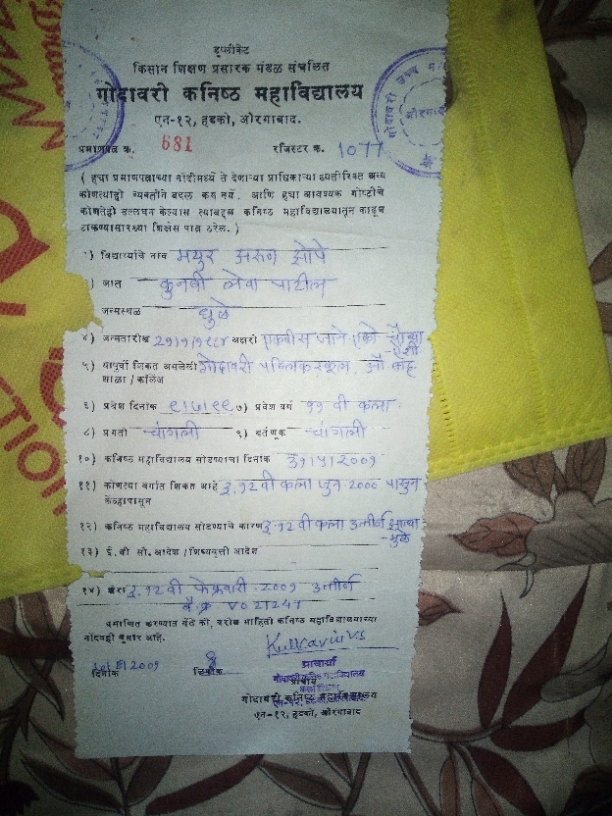 डुप्लीकेट
किसान शिक्षण प्रसारक मंडळ संचलित
गोदावरी कनिष्ठ महाविद्यालय
एन-१२, हडको, औरंगाबाद.
प्रमाणपत्र क. 681 रजिस्टर क. 1077
( ह्या प्रमाणपत्राच्या नोंदीमध्ये ते देणाऱ्या प्राधिकाऱ्या व्यतीरिक्त अन्य
कोणत्याही व्यक्तीने बदल करु नयें. आणि ह्या आवश्यक गोष्टीचे
कोणतेही उल्लघन केल्यास त्याबद्दल कनिष्ठ महाविद्यालयातून काढून
टाकण्यासारख्या शिक्षेस पात्र ठरेल. )
१) विद्यार्थ्याचे नाव मयुर अरुण झोपे
) जात कुनबी लेवा पाटील
जन्मस्थळ धुळे
४) जन्मतारीख २१/१/१९८४ अक्षरी एकवीस जाने एको चौऱ्या
ऐशी
५) यापुर्वी शिकत असलेली गोदावरी पब्लिक स्कूल, औ.बाद
शाळा / कॉलेज
६) प्रवेश दिनांक ९।७।९९ ७) प्रवेश वर्ग ११ वी कला.
८) प्रगती चांगली ९) वर्तणूक चांगली
१०) कनिष्ठ महाविद्यालय सोडण्याचा दिनांक ३१।५।२००१
११) कोणत्या वर्गात शिकत आहे इ. १२ वी कला जुन-2000 पासुन
केंव्हापासून
१२) कनिष्ठ महाविद्यालय सोडण्याचे कारण इ-१२ वी कला उत्तीर्ण झाल्या
मुळे
१३) ई. बी सी. आदेश / शिष्यवृत्ती आदेश
१४) शेरा इ. १२ वी फेब्रुवारी-२००१ उत्तीर्ण
बै. क्र V021241
प्रमाणित करण्यात येते की, वरील माहिती कनिष्ठ महाविद्यालयाच्या
नोंदवही नुसार आहे.
दिनांक २००१ लिपीक
प्राचार्या
गोदावरी कनिष्ठ महाविद्यालय
एन-१२, हडको, औरंगाबाद